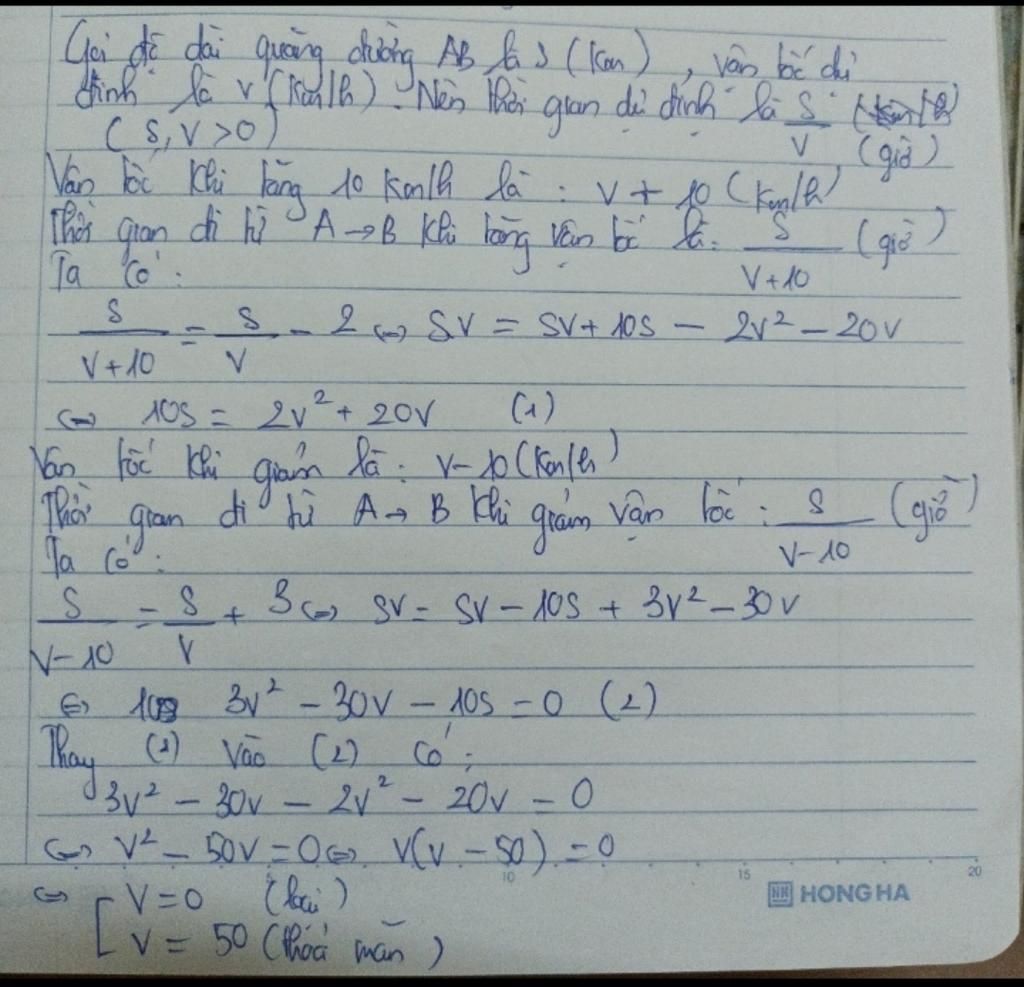 Gọi độ dài quãng đường AB là S (Km), vân tốc dự
định là v (Km/h). Nên thời gian dự định là S/V (giờ)
(S, V > 0)
Vận tốc khi tăng 10 Km/h là: V + 10 (Km/h)
Thời gian đi từ A → B khi tăng vận tốc là: S/(V+10) (giờ)
Ta có:
S/(V+10) = S/V - 2 <=> SV = SV + 10S - 2V² - 20V
<=> 10S = 2V² + 20V (1)
Vận tốc khi giảm là: V - 10 (Km/h)
Thời gian đi từ A → B khi giảm vận tốc: S/(V-10) (giờ)
Ta có:
S/(V-10) = S/V + 3 <=> SV = SV - 10S + 3V² - 30V
<=> 3V² - 30V - 10S = 0 (2)
Thay (1) vào (2) có:
3V² - 30V - 2V² - 20V = 0
<=> V² - 50V = 0 <=> V(V - 50) = 0
<=> [ V = 0 (loại)
V = 50 (thoả mãn)
10 15 20
HONG HA